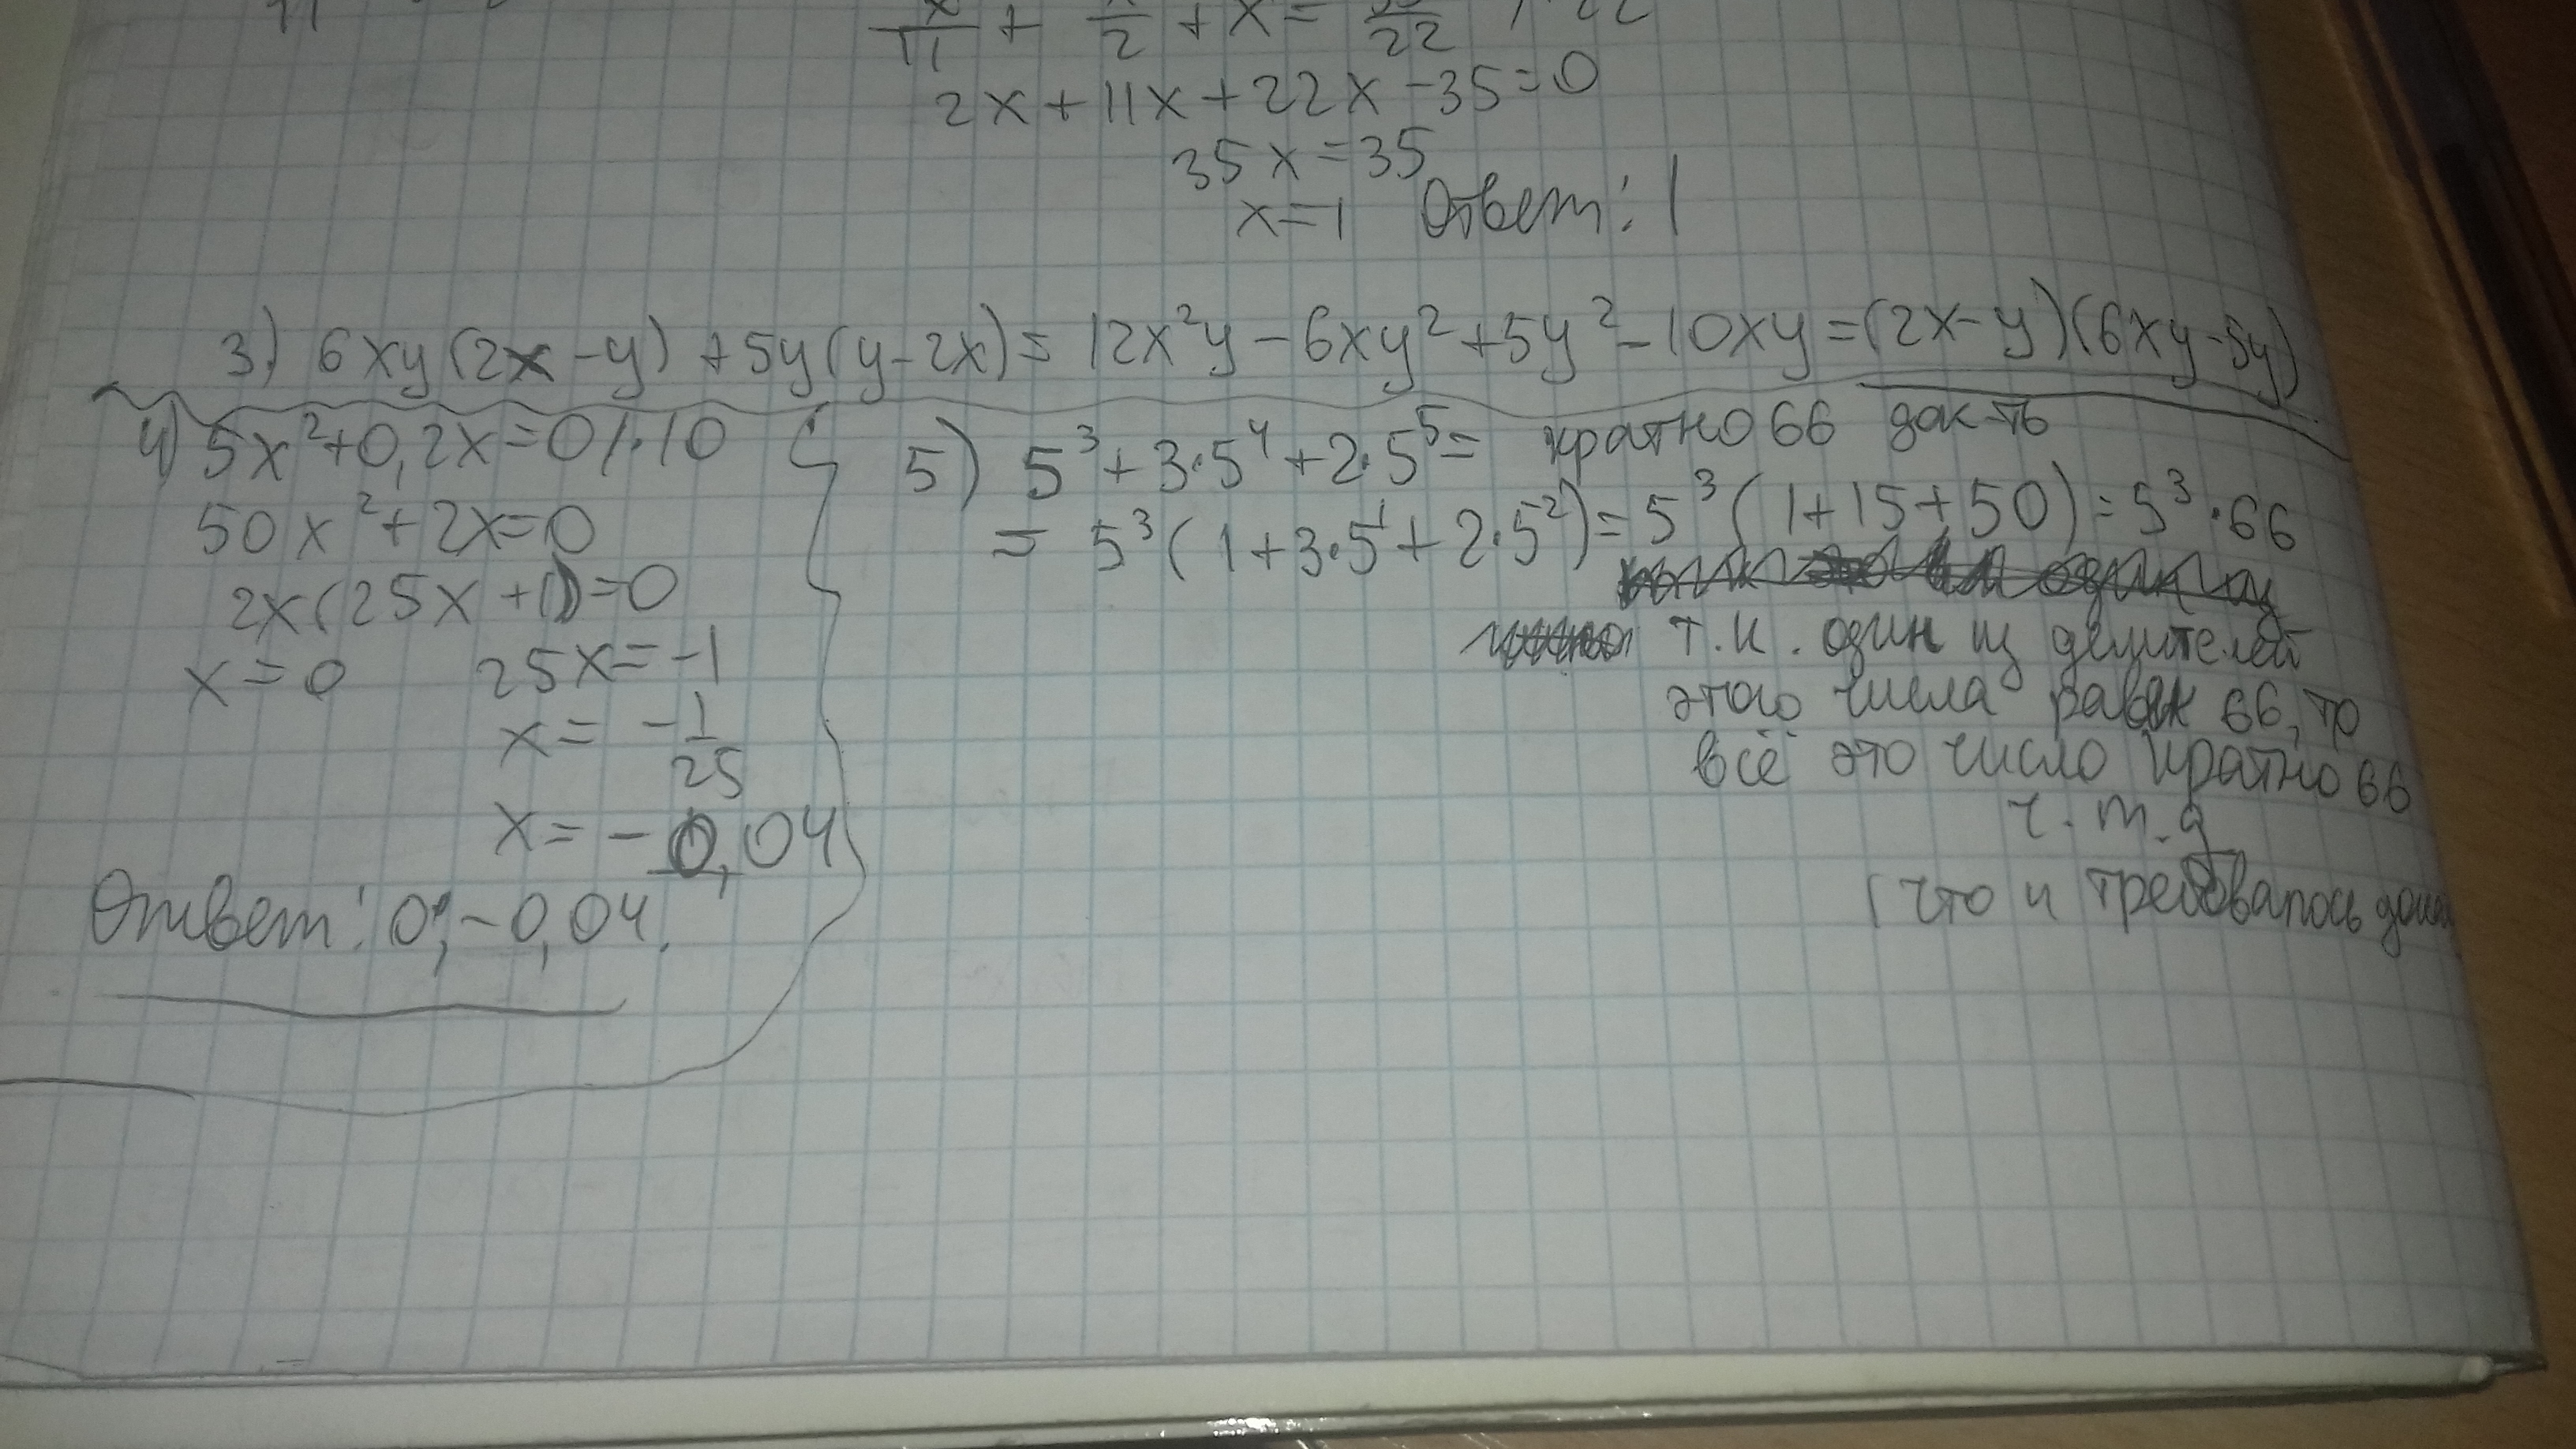 x/11 + x/2 + x = 35/22 /·22
2x+11x+22x-35=0
35x=35
x=1 Ответ: 1
3) 6xy(2x-y)+5y(y-2x)=12x²y-6xy²+5y²-10xy=(2x-y)(6xy-5y)
4) 5x²+0,2x=0/·10
50x²+2x=0
2x(25x+1)=0
x=0 25x=-1
x=-1/25
x=-0,04
Ответ: 0;-0,04.
5) 5³+3·5⁴+2·5⁵= кратно 66 док-ть
=5³(1+3·5¹+2·5²)=5³(1+15+50)=5³·66
т.к. один из делителей
этого числа равен 66, то
всё это число кратно 66
ч.т.д
(что и требовалось